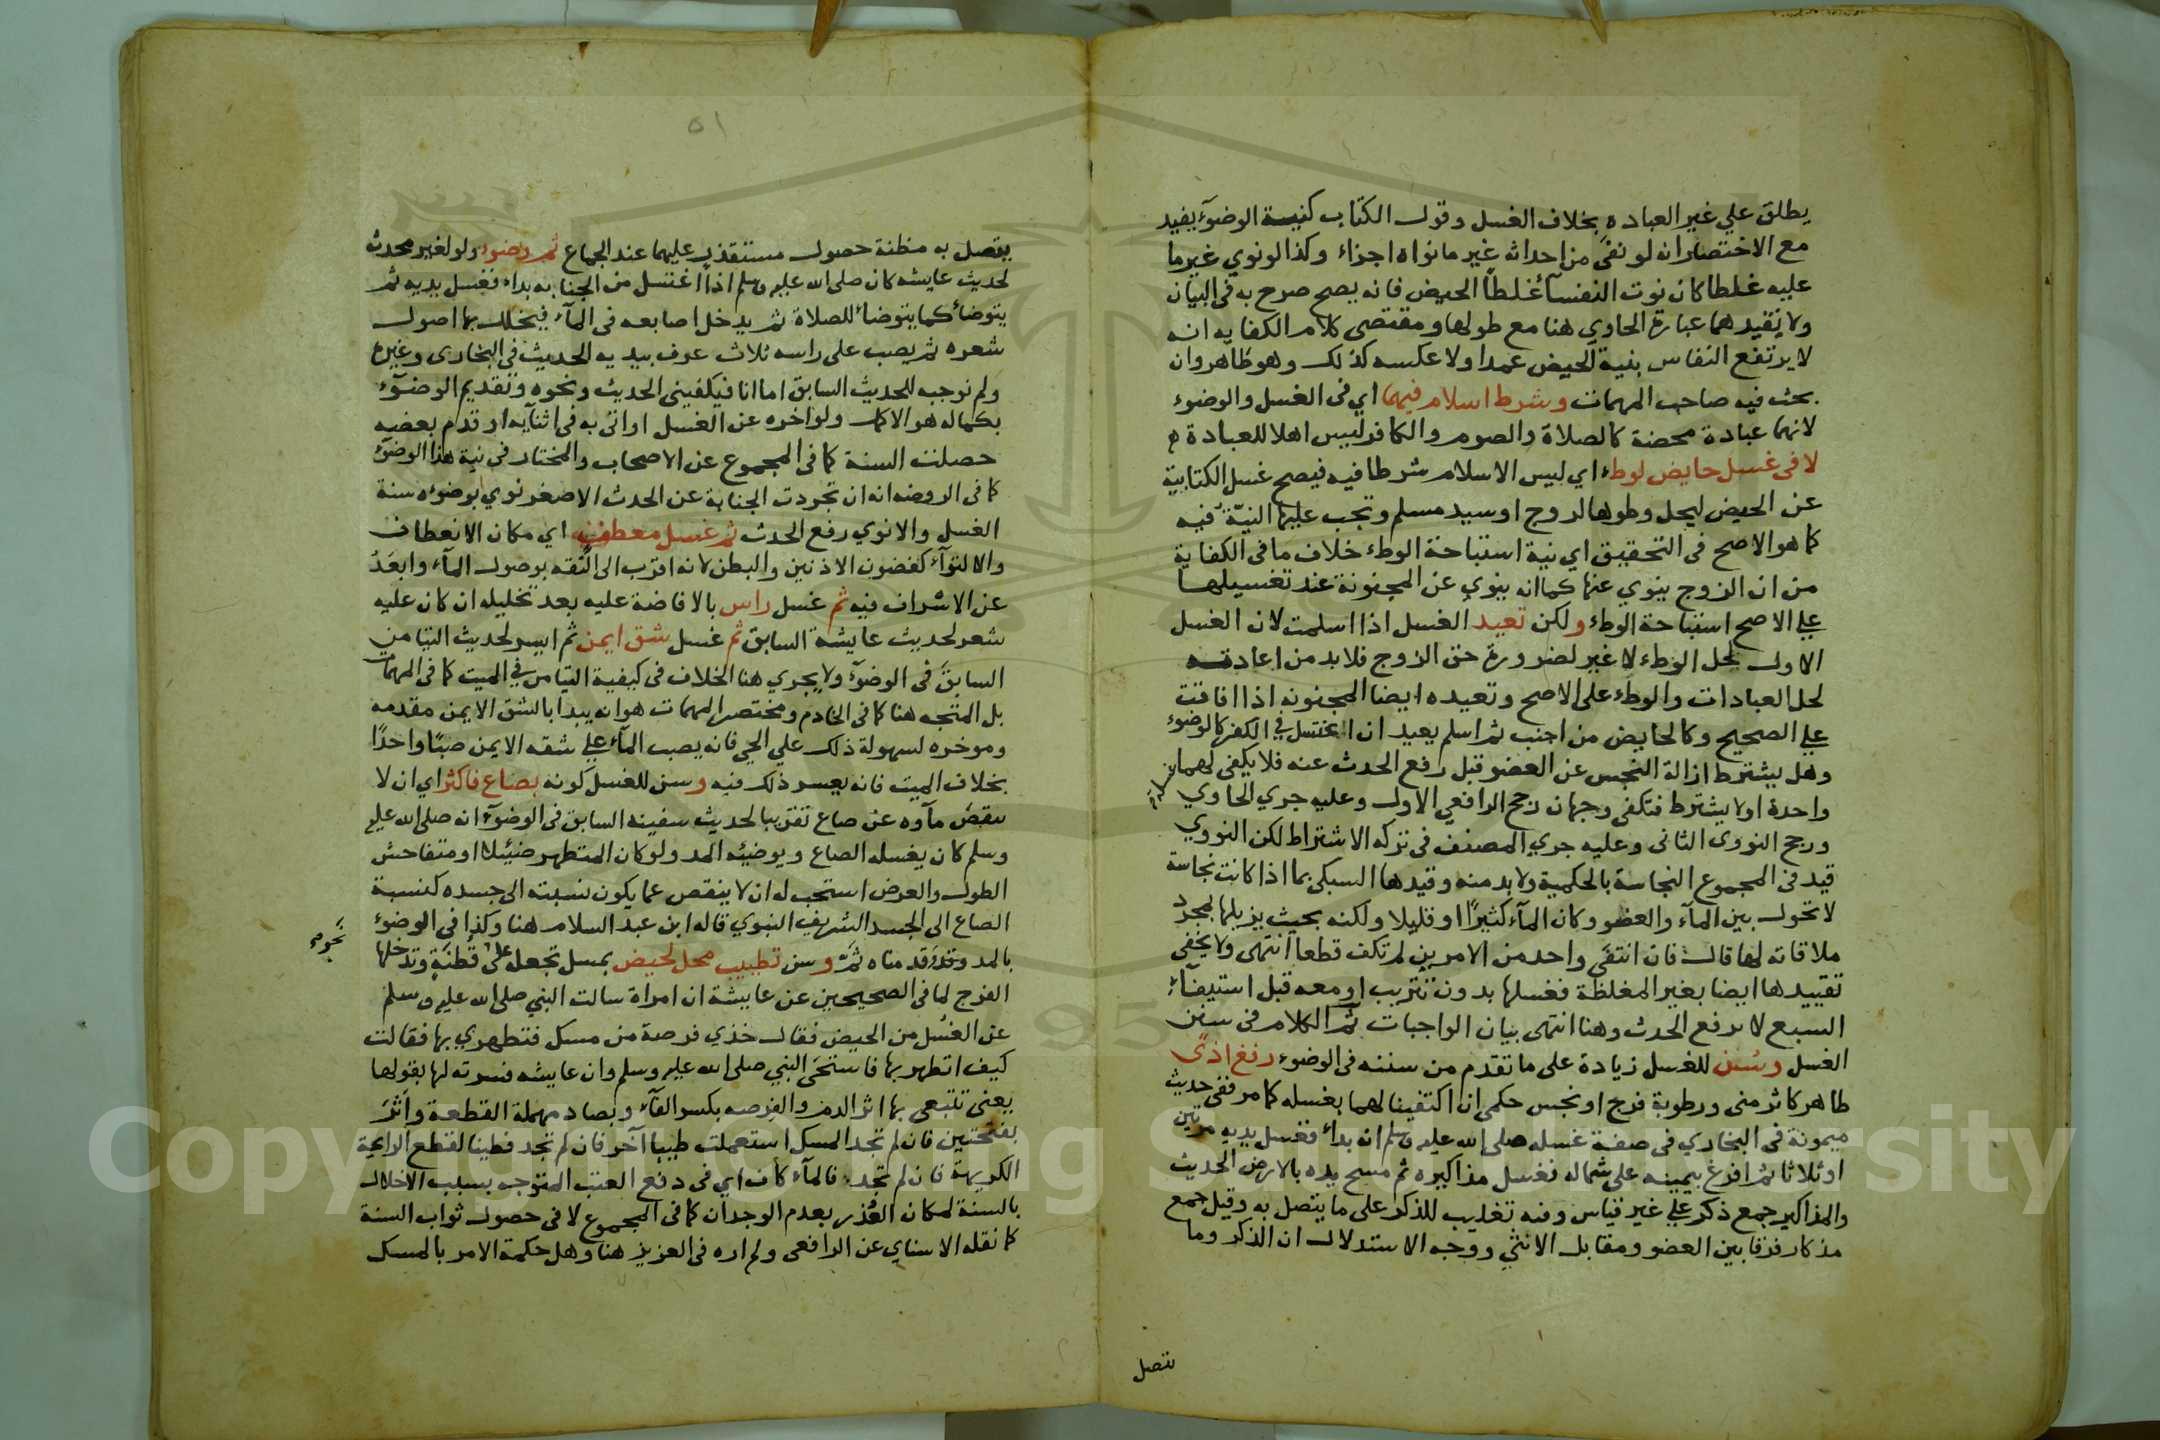 يطلق علي غير العباده بخلاف الغسل وقول الكتاب كنية الوضوء يفيد
مع الاختصار انه لو نفى من احداثه غير ما نواه اجزاء وكذا لو نوي غير ما
عليه غلطا كان نوت النفسآ غلطا الحيض فانه يصح صرح به في البيان
ولا يقيدهما عبارة الحاوي هنا مع طولها ومقتضى كلام الكفايه انه
لا يرتفع النفاس بنية الحيض عمدا ولا عكسه كذلك وهو ظاهر وان
بحث فيه صاحب المهمات وشرط اسلام فيهما اي في الغسل والوضوء
لانهما عبادة محضة كالصلاة والصوم والكافر ليس اهلا للعبادة
لا في غسل حايض لوطء اي ليس الاسلام شرطا فيه فيصح غسل الكتابية
عن الحيض ليحل وطوها لزوج او سيد مسلم وتجب عليها النية فيه
كما هو الاصح في التحقيق اي نية استباحة الوطء خلاف ما في الكفاية
من ان الزوج ينوي عنها كما انه ينوي عن المجنونة عند تغسيلها
علي الاصح استباحة الوطء ولكن تعيد الغسل اذا اسلمت لان الغسل
الاول لحل الوطء لا غير لضرورة حق الزوج فلا بد من اعادته
لحل العبادات والوطء على الاصح وتعيده ايضا المجنونه اذا افاقت
علي الصحيح وكالحايض من اجنب ثم اسلم يعيد ان اغتسل في الكفر كالوضوء
وهل يشترط ازالة النجس عن العضو قبل رفع الحدث عنه فلا يكفي لهما
غسلة
واحدة او لا يشترط فتكفى وجهان رجح الرافعي الاول وعليه جري الحاوي
ورجح النووى الثانى وعليه جري المصنف في تركه الاشتراط لكن النووي
قيد في المجموع النجاسة بالحكمية ولا بد منه وقيدها السبكي بما اذا كانت نجاسة
لا تحول بين المآء والعضو وكان المآء كثيرا او قليلا ولكنه بحيث يزيلها بمجرد
ملاقاته لها قال فان انتفى واحد من الامرين لم تكف قطعا انتهى ولا يخفى
تقييدها ايضا بغير المغلظة فغسلها بدون تتريب او معه قبل استيفآء
السبع لا يرفع الحدث وهنا انتهى بيان الواجبات ثم الكلام في سنن
الغسل وسن للغسل زيادة على ما تقدم من سننه في الوضوء رفع اذى
طاهر كاثر منى ورطوبة فرج او نجس حكمى ان اكتفينا لهما بغسله كما مر ففي حديث
ميمونة في البخاري في صفة غسله صلى الله عليه وسلم انه بداء فغسل يديه مرتين
او ثلاثا ثم افرغ بيمينه على شماله فغسل مذاكيره ثم مسح يده بالارض الحديث
والمذاكير جمع ذكر علي غير قياس وفيه تغليب للذكر على ما يتصل به وقيل جمع
مذكار فرقا بين العضو ومقابل الانثي ووجه الاستدلال ان الذكر وما
يتصل
٥١
يتصل به مظنة حصول مستقذر عليهما عند الجماع ثم وضوء ولو لغير محدث
لحديث عايشه كان صلى الله عليه وسلم اذا اغتسل من الجنابه بداء فغسل يديه ثم
يتوضاء كما يتوضاء للصلاة ثم يدخل اصابعه في المآء فيخلل بها اصول
شعره ثم يصب على راسه ثلاث غرف بيديه الحديث في البخارى وغيره
ولم نوجبه للحديث السابق اما انا فيكفيني الحديث ونحوه وتقديم الوضوء
بكماله هو الاكمل ولو اخره عن الغسل او اتى به في اثنآيه او قدم بعضه
حصلت السنة كما في المجموع عن الاصحاب والمختار في نية هذا الوضوء
كما في الروضه انه ان تجردت الجنابة عن الحدث الاصغر نوي بوضوءه سنة
الغسل والا نوي رفع الحدث ثم غسل معطف اي مكان الانعطاف
والالتوآء كغضون الاذنين والبطن لانه اقرب الى الثقه بوصول المآء وابعد
عن الاسراف فيه ثم غسل راس بالافاضة عليه بعد تخليله ان كان عليه
شعر لحديث عايشة السابق ثم غسل شق ايمن ثم ايسر لحديث التيامن
السابق في الوضوء ولا يجري هنا الخلاف في كيفية التيامن في الميت كما في المهمات
بل المتجه هنا كما في الخادم ومختصر المهمات هو انه يبدا بالشق الايمن مقدمه
وموخره لسهولة ذلك علي الحي فانه يصب المآء علي شقه الايمن صبا واحدا
بخلاف الميت فانه يعسر ذلك فيه وسن للغسل كونه بصاع فاكثر اي ان لا
ينقص مآوه عن صاع تقريبا لحديث سفينه السابق في الوضوء انه صلى الله عليه
وسلم كان يغسله الصاع ويوضيه المد ولو كان المتطهر ضئيلا او متفاحش
الطول والعرض استحب له ان لا ينقص عما يكون نسبته الى جسده كنسبة
الصاع الى الجسد الشريف النبوي قاله ابن عبد السلام هنا وكذا في الوضوء
بالمد وقد قدمناه ثم وسن تطييب محل لحيض بمسك تجعله على قطنة وتدخلها
نحو
الفرج لما في الصحيحين عن عايشة ان امراة سالت النبي صلى الله عليه وسلم
عن الغسل من الحيض فقال خذي فرصة من مسك فتطهري بها فقالت
كيف اتطهر بها فاستحى النبي صلى الله عليه وسلم وان عايشه فسرته لها بقولها
يعنى تتبعى بها اثر الدم والفرصه بكسر الفآء وبصاد مهملة القطعة واثر
بفتحتين فان لم تجد المسك استعملت طيبا آخر فان لم تجد فطينا لقطع الرايحة
الكريهة فان لم تجده فالمآء كاف اي في دفع العتب المتوجه بسبب الاخلال
بالسنة لمكان العذر بعدم الوجدان كما في المجموع لا في حصول ثواب السنة
كما نقله الاسناي عن الرافعى ولم اره في العزيز هنا وهل حكمة الامر بالمسك
Copyright © King Saud University